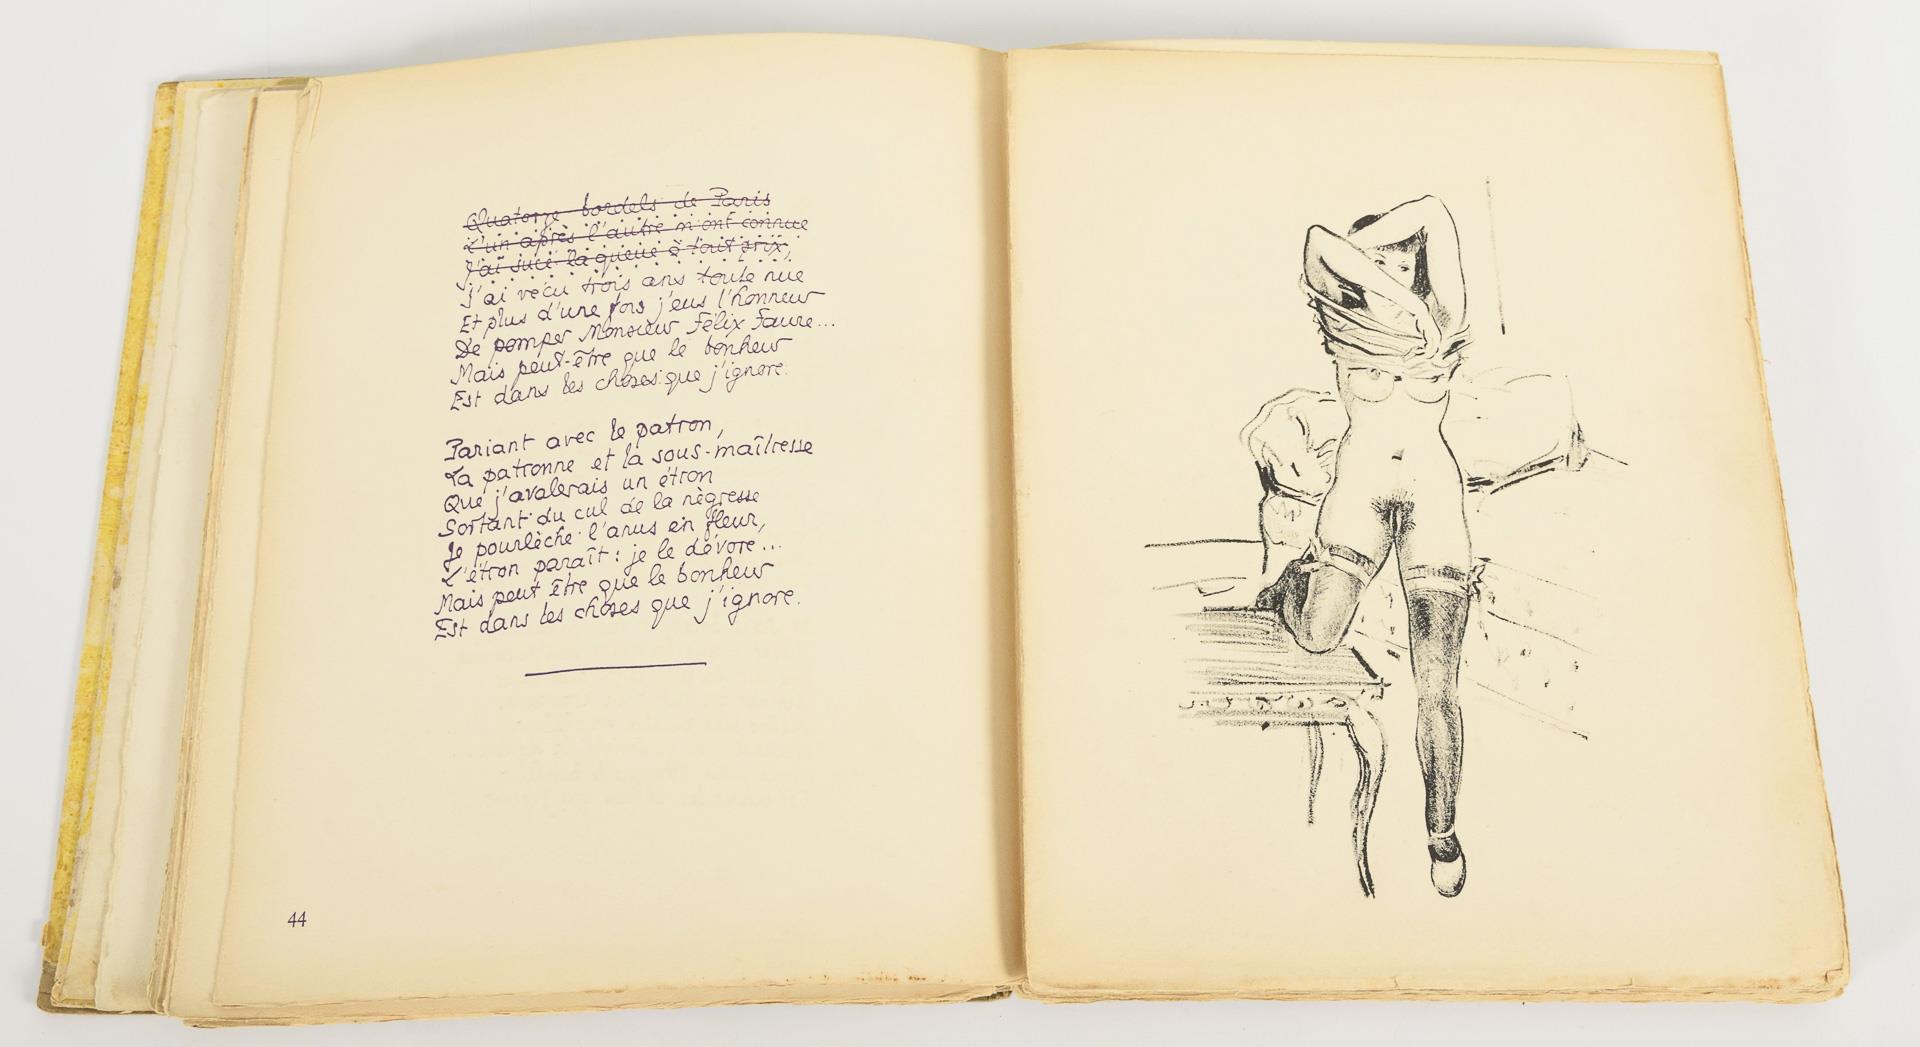 Quatorze bordels de Paris
L'un après l'autre m'ont connue
J'ai sucé la queue à tout prix,
J'ai vécu trois ans toute nue
Et plus d'une fois j'eus l'honneur
De pomper Monsieur Félix Faure...
Mais peut-être que le bonheur
Est dans les choses que j'ignore.
Pariant avec le patron,
La patronne et la sous-maîtresse
Que j'avalerais un étron
Sortant du cul de la nègresse
Je pourlèche l'anus en fleur,
L'étron paraît : je le dévore...
Mais peut être que le bonheur
Est dans les choses que j'ignore.
44